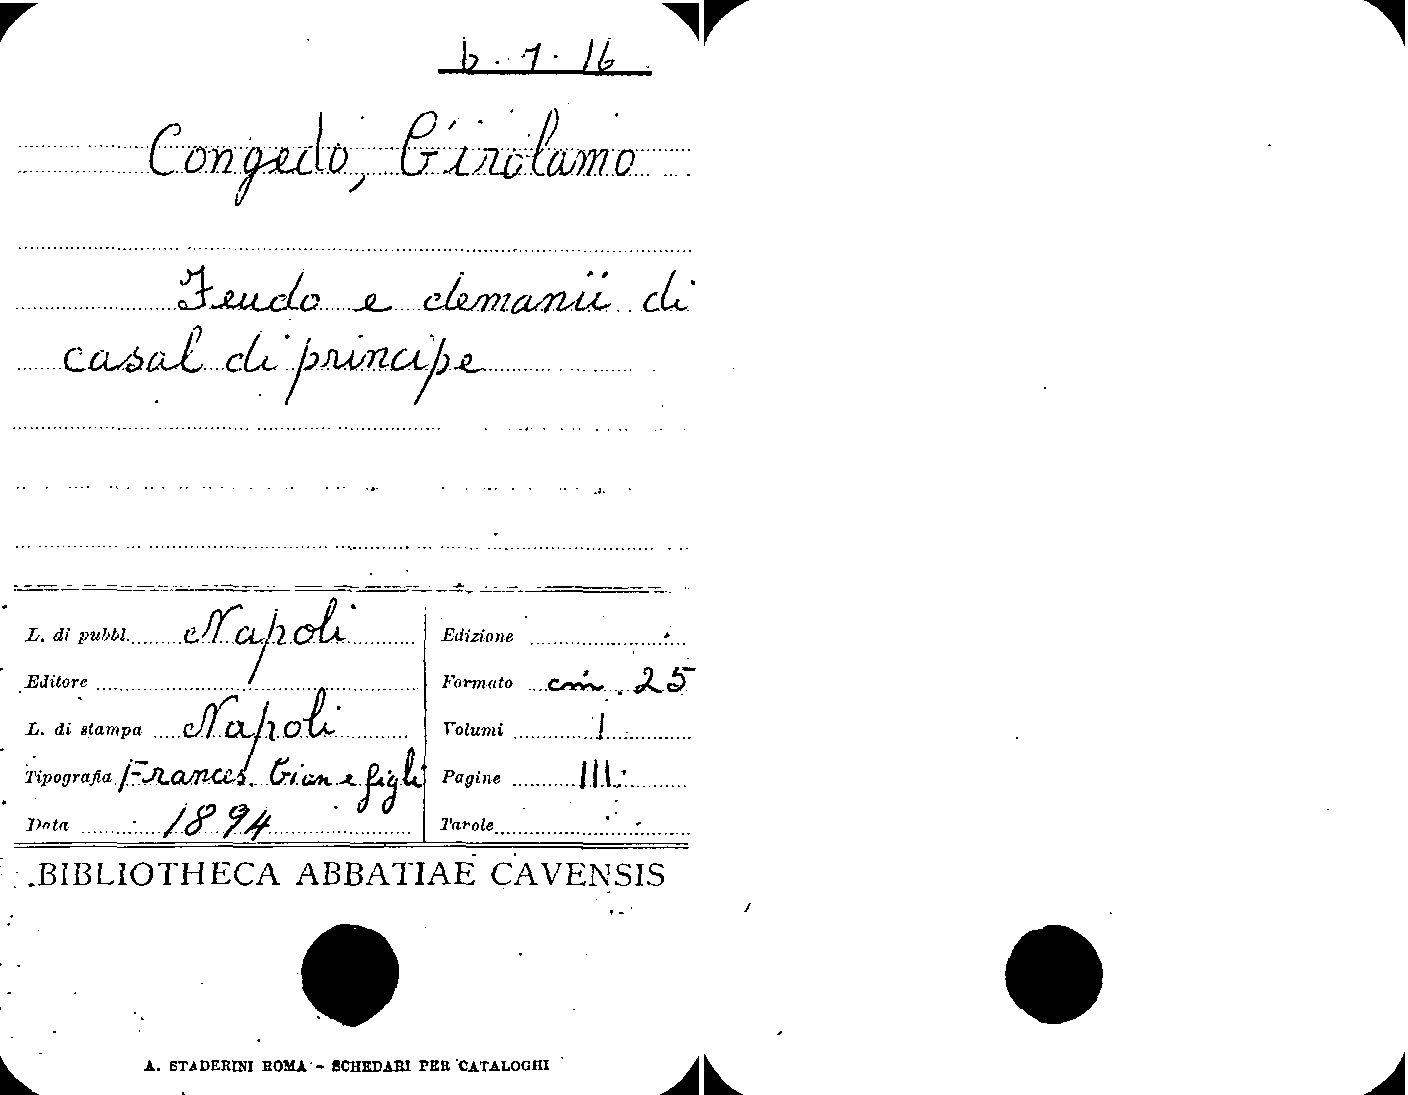 6.7.16
Congedo, Girolamo
Feudo e demanii di
casal di principe
L. di pubbl. Napoli
Editore
L. di stampa Napoli
Tipografia Frances. Gian e figli
Data 1894
Edizione
Formato cm. 25
Volumi 1
Pagine 111
Parole
BIBLIOTHECA ABBATIAE CAVENSIS
A. STADERINI ROMA - SCHEDARI PER CATALOGHI